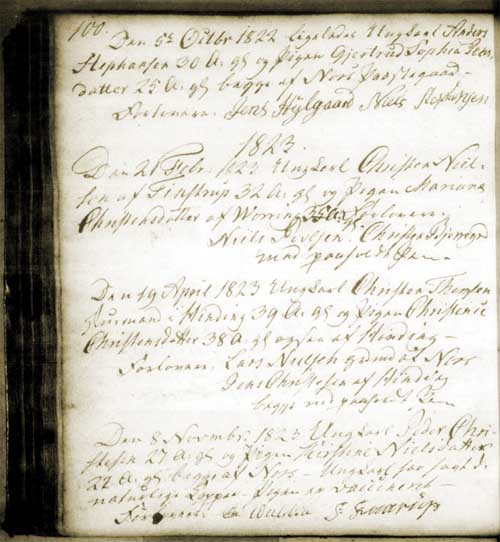 100.
Den 5t Octbr 1822 Ligeledes Ungkarl Anders
Stephansen 30 A: gl og Pigen Gjertrud Sophia
datter 25 A: gl begge af Nors
Forlovere: Jens Hylgaard Niels Stephansen
1823.
Den 21 Febr: 1823 Ungkarl Christen Niel-
sen af Tinstrup 32 A: gl og Pigen Mariane
Christensdatter af Worring 35 A: gl Forlovere:
Niels Christen
med paaholdt Pen
Den 19 April 1823 Ungkarl Christen Thomsen
Huusmand i Hinding 39 A: gl og Pigen Christence
Christensdatter 38 A: gl ogsaa af Hinding
Forlovere: Lars Nielsen af Nors
Jens Christensen af Hinding
begge med paaholdt Pen
Den 8 Novembr 1823 Ungkarl Peder Chri-
stensen 27 A: gl og Pigen Kirstine Nielsdatter
22 A: gl begge af Nors - Ungkarl har havt de
naturlige Kopper - Pigen er vaccineret -
Forlovere: